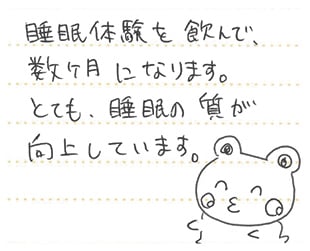 睡眠体験を飲んで、
数ヶ月になります。
とても、睡眠の質が
向上しています。